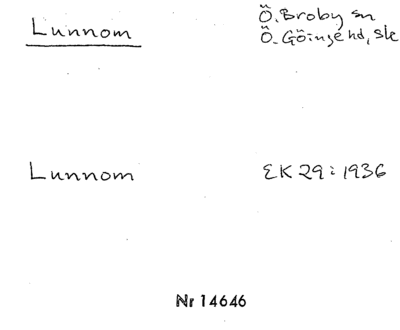 Lunnom
Ö. Broby sn
Ö. Göinge hd, Sk
Lunnom
EK 29:1936
Nr 14646